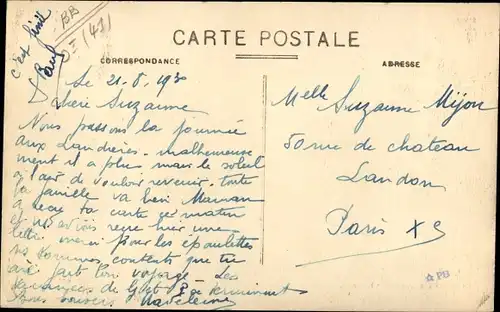 c'est fini
Paul
BB
CARTE POSTALE
CORRESPONDANCE
ADRESSE
Le 21-8-1930
Chère Suzanne
Nous passons la journée
aux Landières. malheureuse
ment il a plu mais le soleil
a l'air de vouloir revenir. toute
la famille va bien Maman
a reçu ta carte ce matin
et hier une
lettre merci pour les épaulettes
ns sommes contents que tu
aies fait bon voyage. Les
vacances de
Bons baisers Madeleine
Melle Suzanne Mijon
50 rue de chateau
Landon
Paris Xe
☆PB